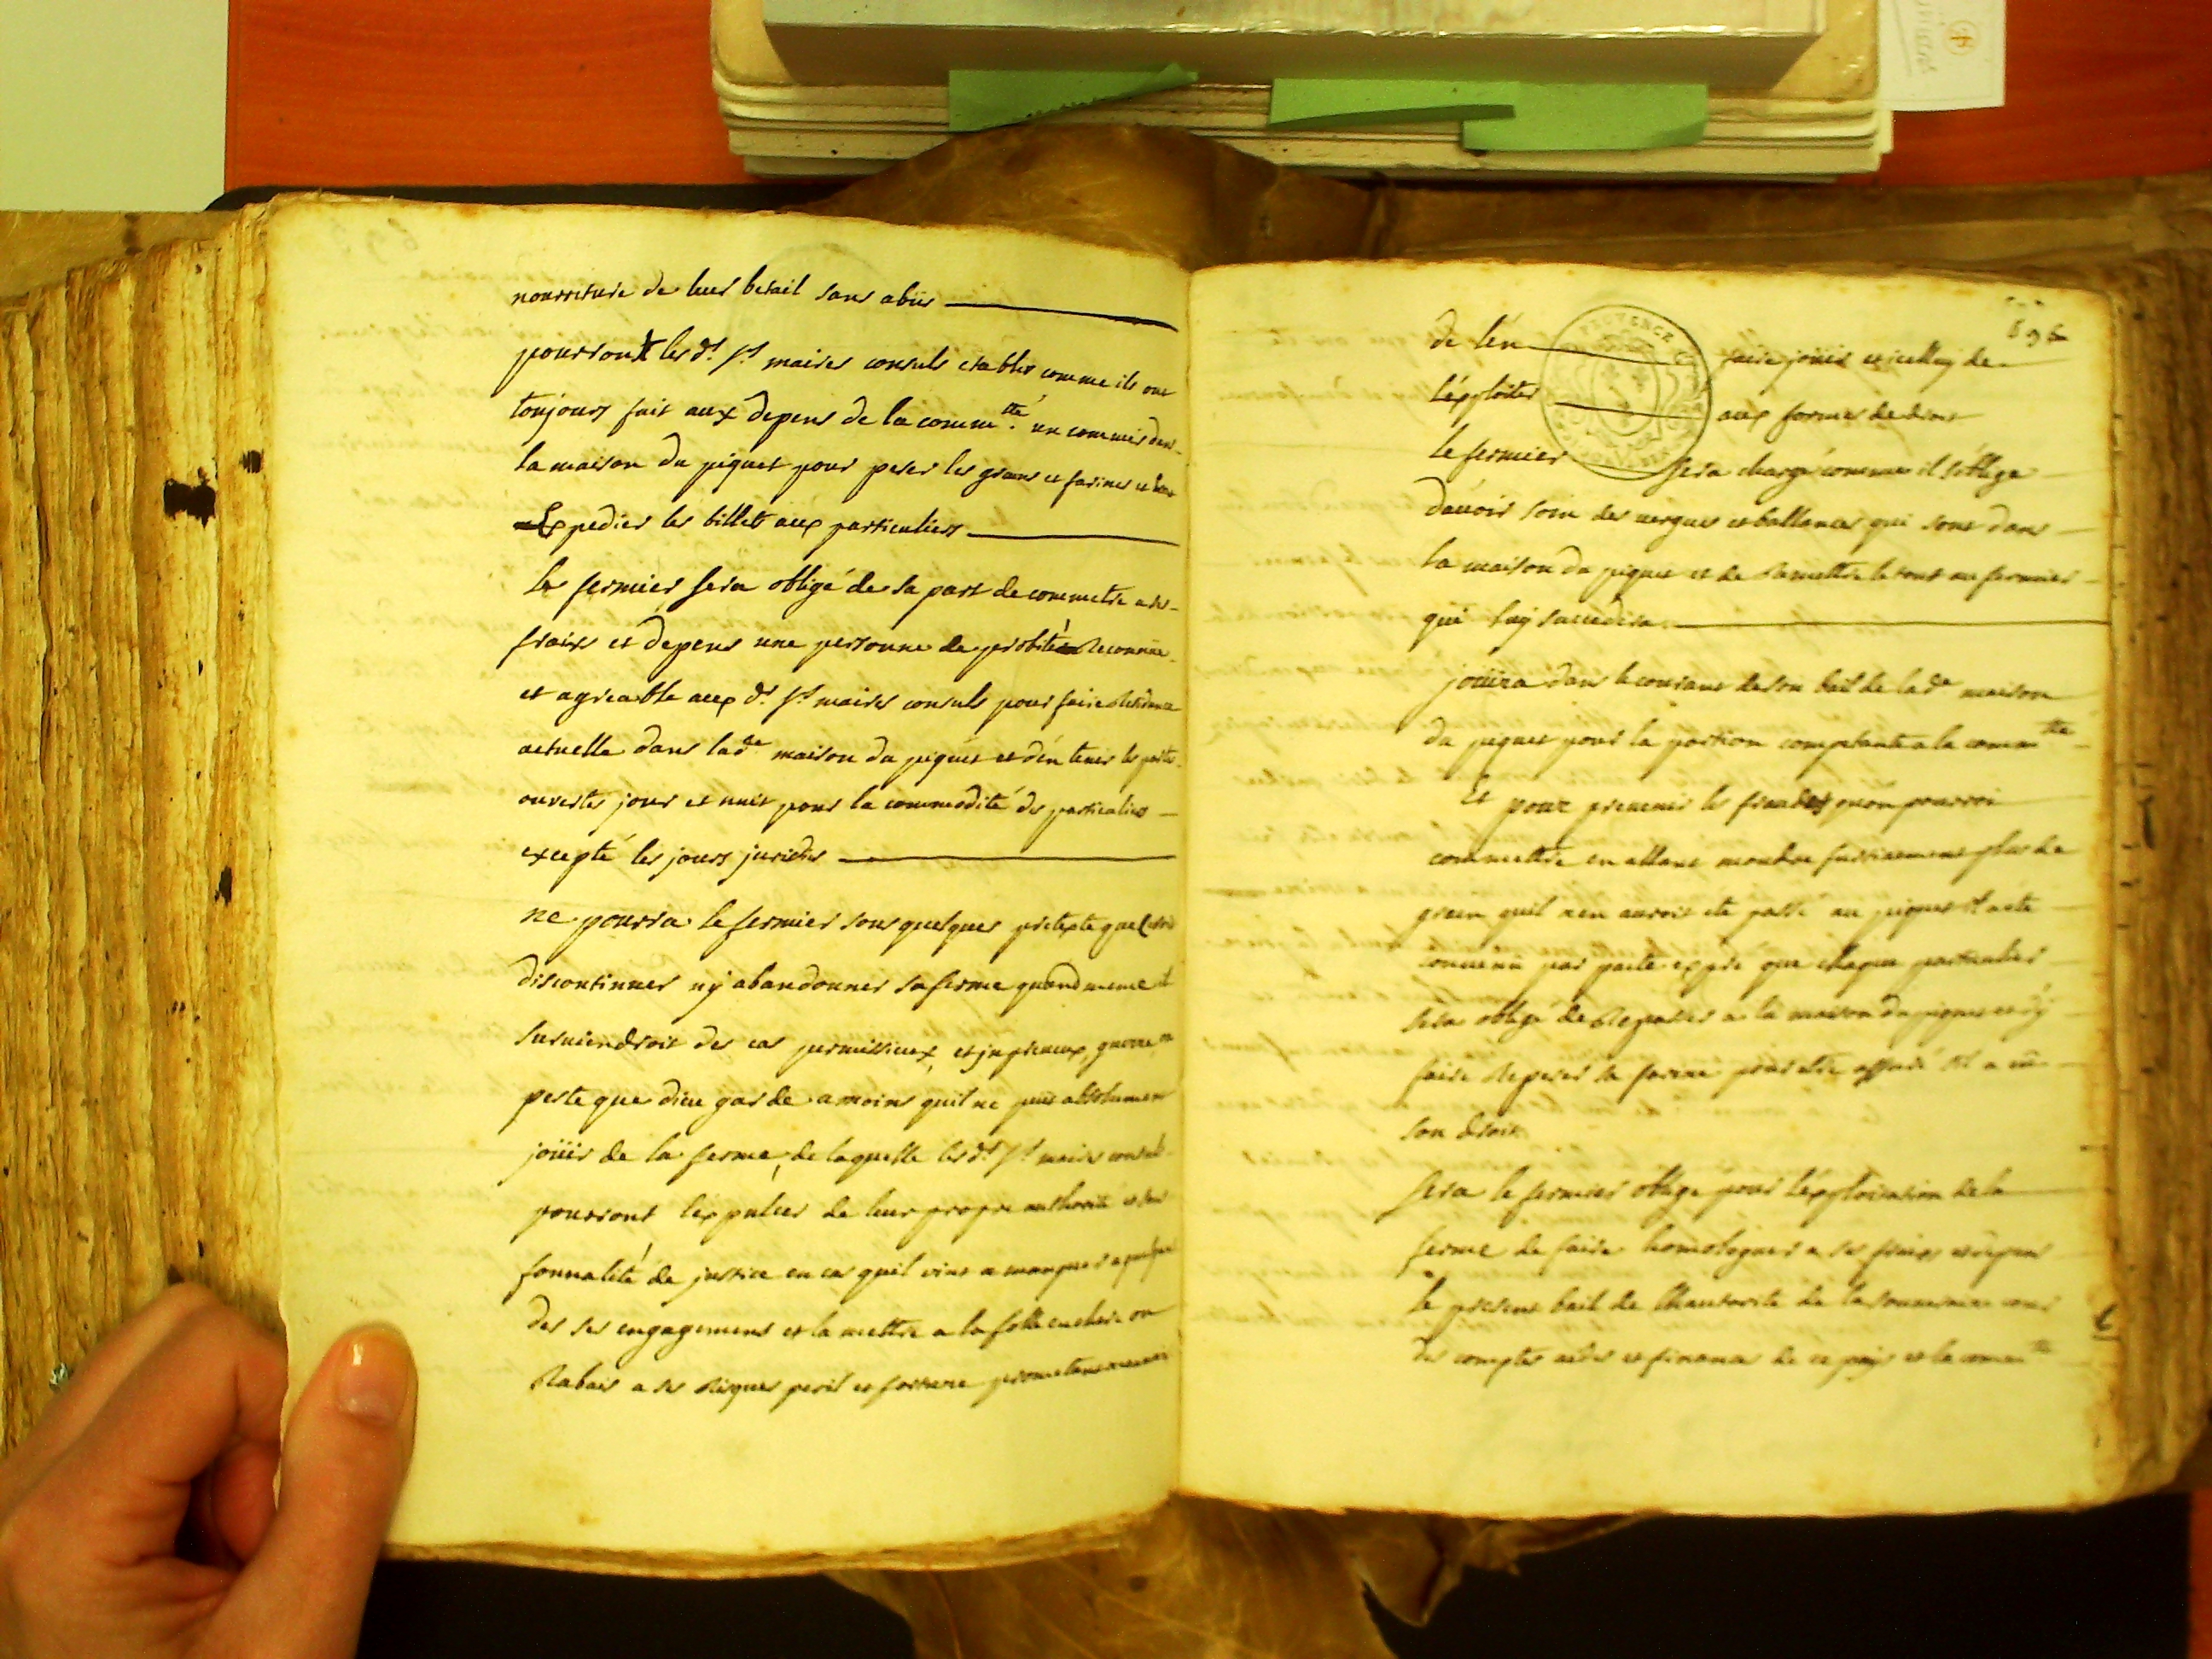 nourriture de leur betail sans abus
pourront les d.s s.rs maires consuls etablir comme ils ont
toujours fait aux depens de la comm.tté un commis dans
la maison du piquet pour peser les grains et farines et
Expedier les billets aux particuliers
le fermier sera obligé de sa part de commetre a ses
fraix et depens une personne de probité Reconnüe
et agreable aux d.s s.rs maires consuls pour faire Residence
actuelle dans lad.e maison du piquet et d'en tenir les portes
ouvertes jour et nuit pour la commodité des particuliers
excepté les jours
ne pourra le fermier sous quelques pretexte que ce soit
discontinuer ny abandonner sa ferme quand meme il
surviendroit des cas et guerre ou
peste que dieu garde a moins quil ne put absolument
joüir de la ferme, de laquelle les d.s s.rs maires consuls
pourront l'expulser de leur propre authorité et sans
formalité de justice en cas quil vint a manquer a quelqun
des ses engagemens et la mettre a la folle enchere ou
Rabais a ses Risques peril et fortune promettant
696
de l'en faire joüir et icelluy de
l'exploiter aux formes de droit
le fermier sera chargé comme il s'oblige
d'avoir soin des vergues et ballances qui sont dans
la maison du piquet et de Remettre le tout au fermier
qui luy succedera
joüira dans le courant de son bail de lad.e maison
du piquet pour la portion comptante a la comm.tté
Et pour prevenir les fraudes quon pourroit
commettre en allant moudre furtivement plus de
grain quil n'en auroit eté passé au piquet il a eté
convenu par pacte exprés que chaque particulier
sera obligé de Repasser a la maison du piquet et d'y
faire Repeser la farine pour etre assuré sil a
son droit
sera le fermier obligé pour l'exploitation de la
ferme de faire homologuer a ses fraix et depens
le present bail de lhautorité de la souveraine cour
des comptes aides et finances de ce pays et la comm.tté
PROVENCE